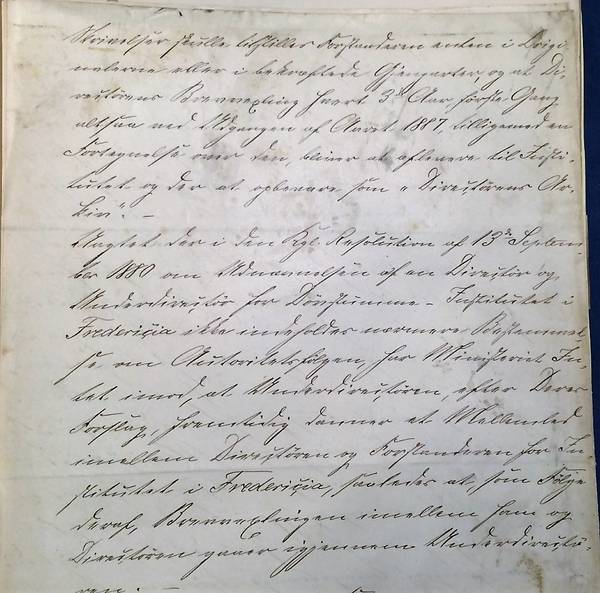 Skrivelser skulle tilstilles Forstanderen enten i Origi-
nalerne eller i bekræftede Gjenparter, og at Di-
rectörens Brevvexling hvert 3die Aar, förste Gang
altsaa ved Udgangen af Aaret 1887, tilligemed en
Fortegnelse over den, bliver at aflevere til Insti-
tutet og der at opbevare som "Directörens Ar-
kiv". —
Uagtet der i den Kgl. Resolution af 13de Septem-
ber 1880 om Udnævnelsen af en Directör og
Underdirectör for Dövstumme-Institutet i
Fredericia ikke indeholdes nærmere Bestemmel-
se om Autoritetsfölgen, har Ministeriet In-
tet imod, at Underdirectören, efter Deres
Forslag, fremtidig danner et Mellemled
imellem Directören og Forstanderen for In-
stitutet i Fredericia, saaledes at, som Fölge
deraf, Brevvexlingen imellem ham og
Directören gaaer igjennem Underdirectö-
ren. —